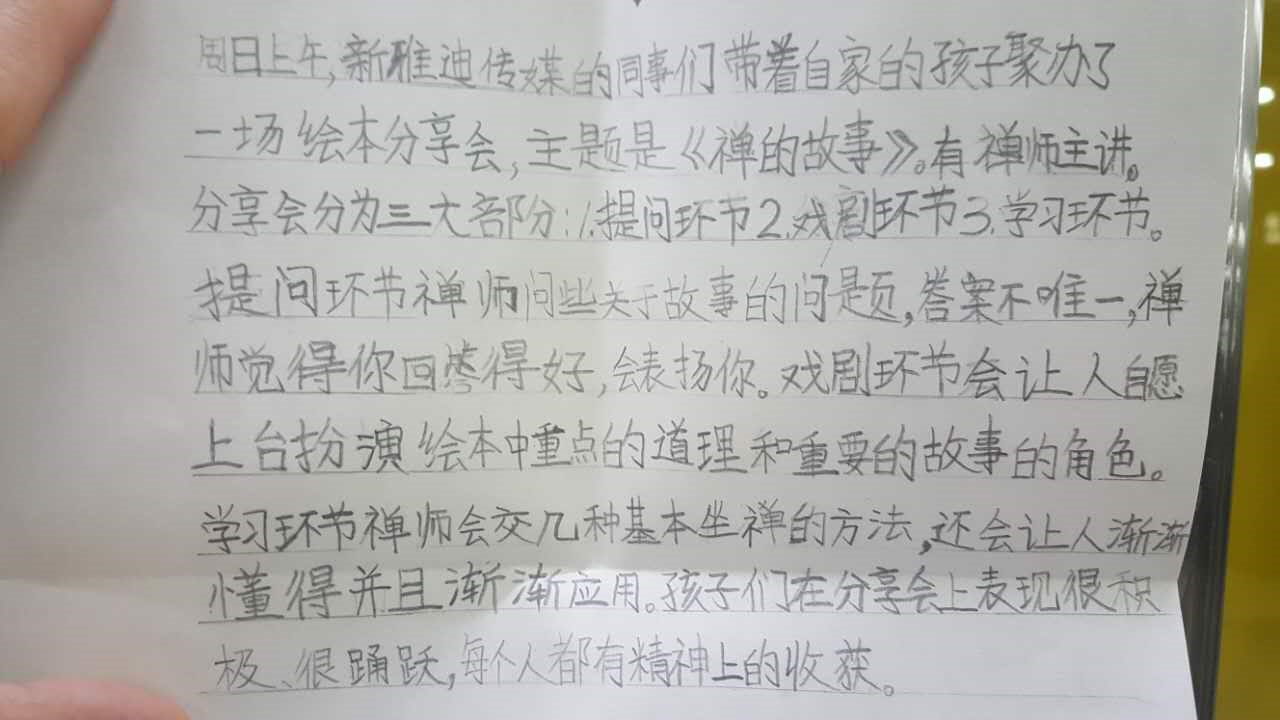 周日上午,新雅迪传媒的同事们带着自家的孩子聚办了
一场绘本分享会,主题是《禅的故事》。有禅师主讲。
分享会分为三大部分:1.提问环节2.戏剧环节3.学习环节。
提问环节禅师问些关于故事的问题,答案不唯一,禅
师觉得你回答得好,会表扬你。戏剧环节会让人自愿
上台扮演绘本中重点的道理和重要的故事的角色。
学习环节禅师会交几种基本坐禅的方法,还会让人渐渐
懂得并且渐渐应用。孩子们在分享会上表现很积
极、很踊跃,每个人都有精神上的收获。